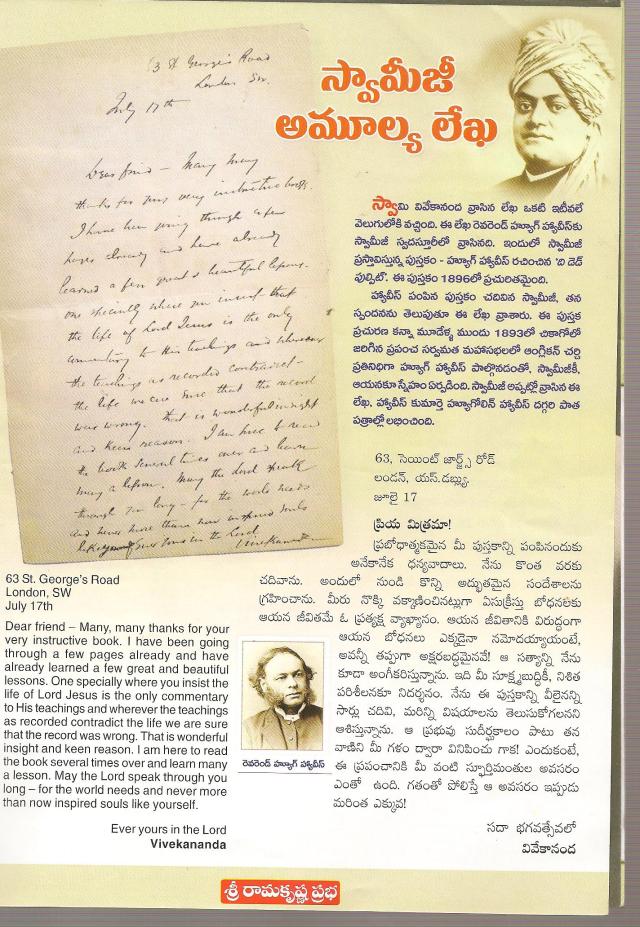 63 St. George's Road
London SW.
July 17th
Dear friend – Many Many
thanks for your very instructive book.
I have been going through a few
pages already and have already
learned a few great & beautiful lessons.
One specially where you insist that
the life of Lord Jesus is the only
commentary to His teachings and wherever
the teachings as recorded contradict
the life we are sure that the record
was wrong. That is wonderful insight
and keen reason. I am here to read
the book several times over and learn
many a lesson. May the Lord speak
through you long – for the world needs
and never more than now inspired souls
like yourself
Ever yours in the Lord
Vivekananda
స్వామీజీ
అమూల్య లేఖ
స్వామి వివేకానంద వ్రాసిన లేఖ ఒకటి ఇటీవలే
వెలుగులోకి వచ్చింది. ఈ లేఖ రెవరెండ్ హ్యూగ్ హ్యావీస్‌కు
స్వామీజీ స్వదస్తూరీలో వ్రాసినది. ఇందులో స్వామీజీ
ప్రస్తావిస్తున్న పుస్తకం - హ్యూగ్ హ్యావీస్ రచించిన 'ది డెడ్
పుల్పిట్'. ఈ పుస్తకం 1896లో ప్రచురితమైంది.
హ్యావీస్ పంపిన పుస్తకం చదివిన స్వామీజీ, తన
స్పందనను తెలుపుతూ ఈ లేఖ వ్రాశారు. ఈ పుస్తక
ప్రచురణ కన్నా మూడేళ్ళ ముందు 1893లో చికాగోలో
జరిగిన ప్రపంచ సర్వమత మహాసభలలో ఆంగ్లికన్ చర్చి
ప్రతినిధిగా హ్యూగ్ హ్యావీస్ పాల్గొనడంతో, స్వామీజీకీ,
ఆయనకూ స్నేహం ఏర్పడింది. స్వామీజీ అప్పట్లో వ్రాసిన ఈ
లేఖ, హ్యావీస్ కుమార్తె హ్యూగోలిన్ హ్యావీస్ దగ్గరి పాత
పత్రాల్లో లభించింది.
63, సెయింట్ జార్జ్స్ రోడ్
లండన్, యస్.డబ్ల్యు.
జూలై 17
ప్రియ మిత్రమా!
ప్రబోధాత్మకమైన మీ పుస్తకాన్ని పంపినందుకు
అనేకానేక ధన్యవాదాలు. నేను కొంత వరకు
చదివాను. అందులో నుండి కొన్ని అద్భుతమైన సందేశాలను
గ్రహించాను. మీరు నొక్కి వక్కాణించినట్లుగా ఏసుక్రీస్తు బోధనలకు
ఆయన జీవితమే ఓ ప్రత్యక్ష వ్యాఖ్యానం. ఆయన జీవితానికి విరుద్ధంగా
ఆయన బోధనలు ఎక్కడైనా నమోదయ్యాయంటే,
అవన్నీ తప్పుగా అక్షరబద్ధమైనవే! ఆ సత్యాన్ని నేను
కూడా అంగీకరిస్తున్నాను. ఇది మీ సూక్ష్మబుద్ధికీ, నిశిత
పరిశీలనకూ నిదర్శనం. నేను ఈ పుస్తకాన్ని వీలైనన్ని
సార్లు చదివి, మరిన్ని విషయాలను తెలుసుకోగలనని
ఆశిస్తున్నాను. ఆ ప్రభువు సుదీర్ఘకాలం పాటు తన
వాణిని మీ గళం ద్వారా వినిపించు గాక! ఎందుకంటే,
ఈ ప్రపంచానికి మీ వంటి స్ఫూర్తిమంతుల అవసరం
ఎంతో ఉంది. గతంతో పోలిస్తే ఆ అవసరం ఇప్పుడు
మరింత ఎక్కువ!
సదా భగవత్సేవలో
వివేకానంద
63 St. George's Road
London, SW
July 17th
Dear friend – Many, many thanks for your
very instructive book. I have been going
through a few pages already and have
already learned a few great and beautiful
lessons. One specially where you insist the
life of Lord Jesus is the only commentary
to His teachings and wherever the teachings
as recorded contradict the life we are sure
that the record was wrong. That is wonderful
insight and keen reason. I am here to read
the book several times over and learn many
a lesson. May the Lord speak through you
long – for the world needs and never more
than now inspired souls like yourself.
Ever yours in the Lord
Vivekananda
రెవరెండ్ హ్యూగ్ హ్యావీస్
శ్రీ రామకృష్ణ ప్రభ